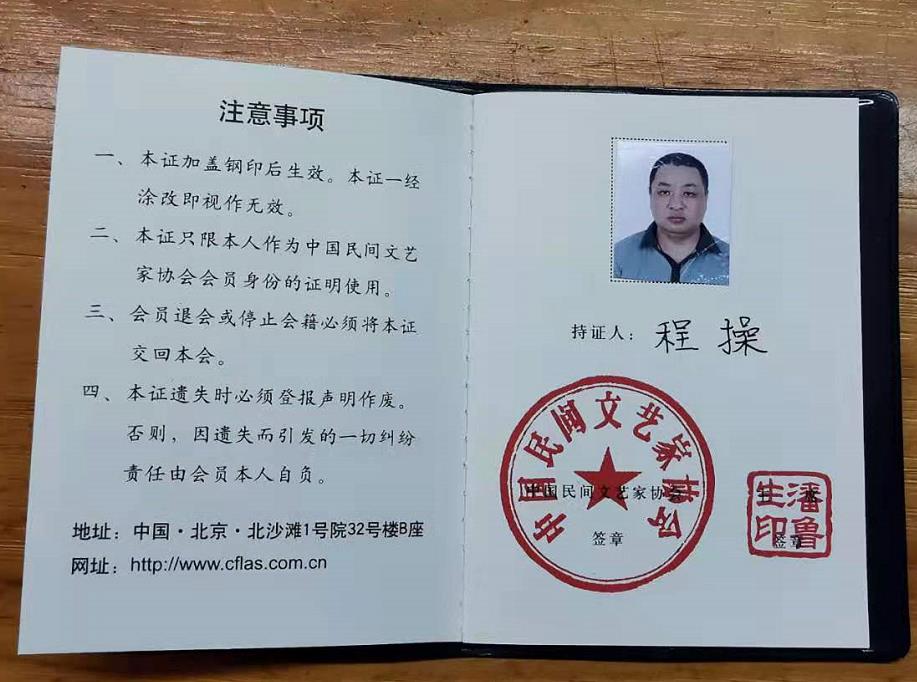 注意事项
一、本证加盖钢印后生效。本证一经
涂改即视作无效。
二、本证只限本人作为中国民间文艺
家协会会员身份的证明使用。
三、会员退会或停止会籍必须将本证
交回本会。
四、本证遗失时必须登报声明作废。
否则，因遗失而引发的一切纠纷
责任由会员本人自负。
地址：中国·北京·北沙滩1号院32号楼B座
网址：http://www.cflas.com.cn
持证人：程操
中国民间文艺家协会
中国民间文艺家协会
签章
潘鲁生印
签章